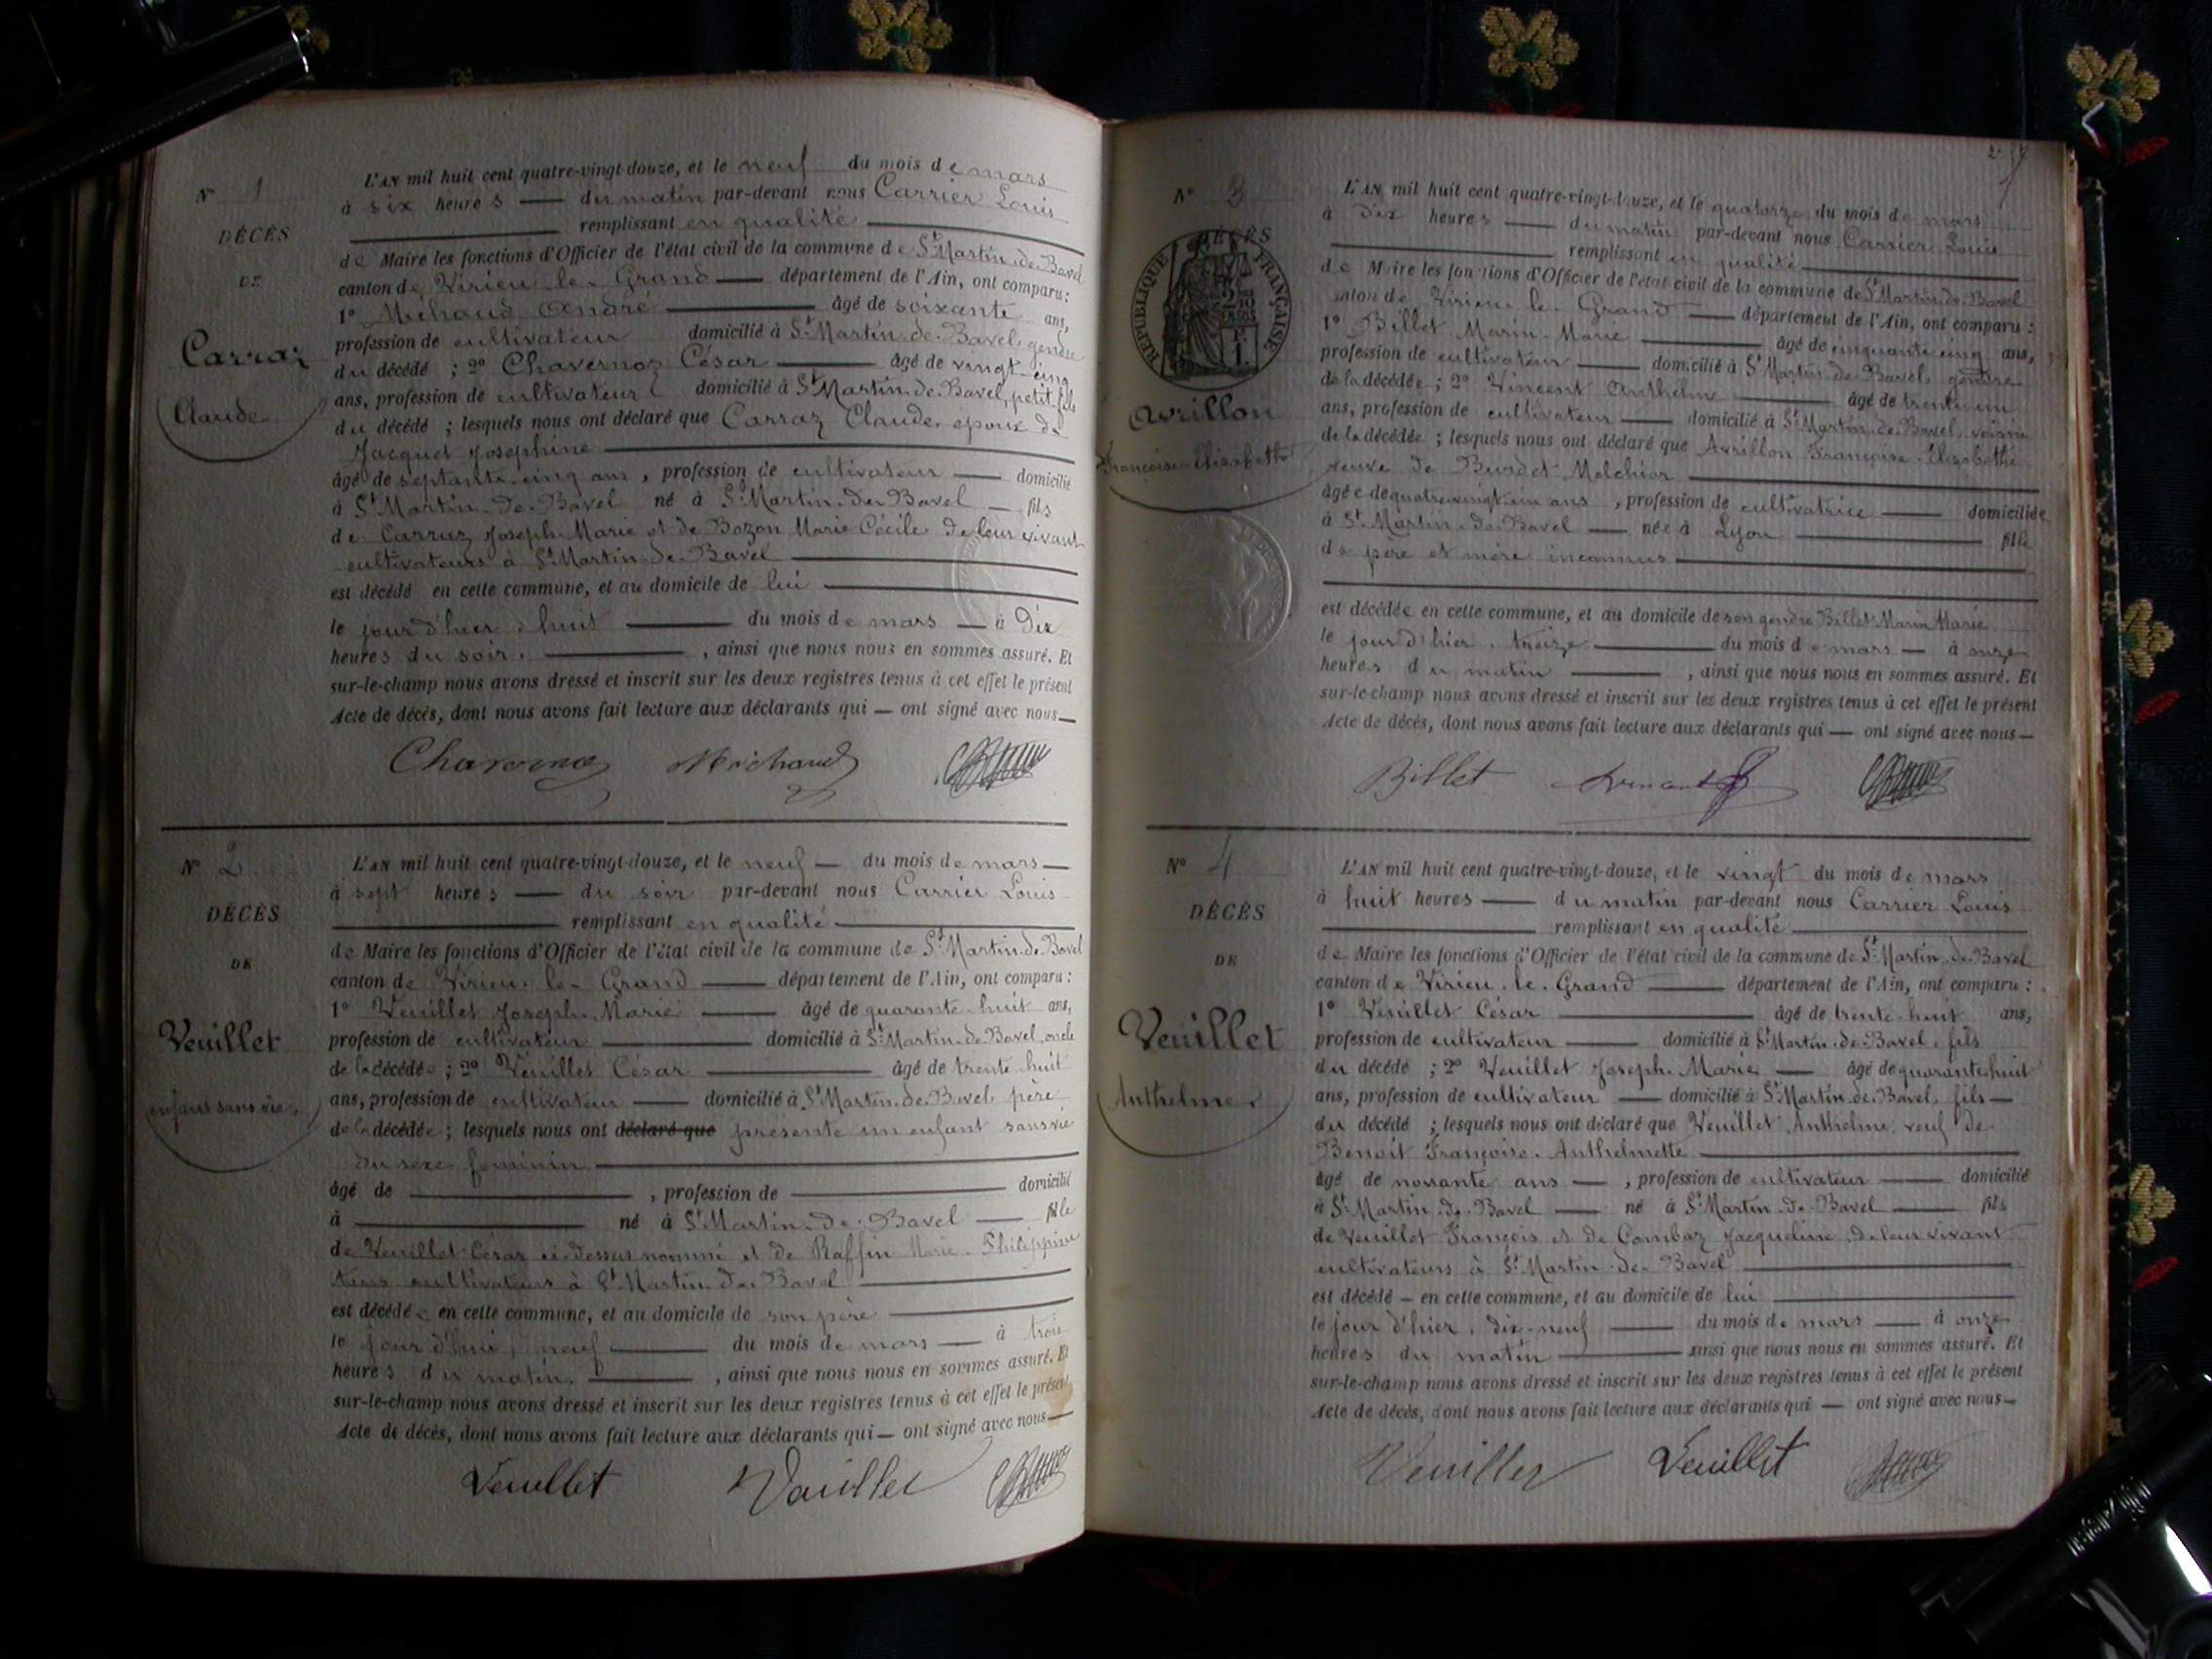 N° 1
DÉCÈS
DE
Carraz
Claude
L'AN mil huit cent quatre-vingt-douze, et le neuf du mois de mars
à six heures du matin par-devant nous Carrier Louis
remplissant en qualité
de Maire les fonctions d'Officier de l'état civil de la commune de St Martin-de-Bavel
canton de Virieu-le-Grand département de l'Ain, ont comparu :
1° Michaud André âgé de soixante ans,
profession de cultivateur domicilié à St Martin-de-Bavel, gendre
du décédé ; 2° Chavernoz César âgé de vingt-cinq
ans, profession de cultivateur domicilié à St Martin-de-Bavel, petit-fils
du décédé ; lesquels nous ont déclaré que Carraz Claude, époux de
Jacquet Joséphine
âgé de septante-cinq ans, profession de cultivateur domicilié
à St Martin-de-Bavel né à St Martin-de-Bavel fils
de Carraz Joseph-Marie et de Bozon Marie Cécile de leur vivant
cultivateurs à St Martin-de-Bavel
est décédé en cette commune, et au domicile de lui
le jour d'hier, huit du mois de mars à dix
heures du soir, ainsi que nous nous en sommes assuré. Et
sur-le-champ nous avons dressé et inscrit sur les deux registres tenus à cet effet le présent
Acte de décès, dont nous avons fait lecture aux déclarants qui — ont signé avec nous —
Chavernoz Michaud
N° 2
DÉCÈS
DE
Veuillet
enfant sans vie
L'AN mil huit cent quatre-vingt-douze, et le neuf du mois de mars
à sept heures du soir par-devant nous Carrier Louis
remplissant en qualité
de Maire les fonctions d'Officier de l'état civil de la commune de St Martin-de-Bavel
canton de Virieu-le-Grand département de l'Ain, ont comparu :
1° Veuillet Joseph-Marie âgé de quarante-huit ans,
profession de cultivateur domicilié à St Martin-de-Bavel, oncle
de la décédée ; 2° Veuillet César âgé de trente huit
ans, profession de cultivateur domicilié à St Martin-de-Bavel, père
de la décédée ; lesquels nous ont déclaré que présenté un enfant sans vie
du sexe féminin
âgé de , profession de domicilié
à né à St Martin-de-Bavel fille
de Veuillet César ci-dessus nommé et de Raffin Marie-Philippine
tous cultivateurs à St Martin-de-Bavel
est décédée en cette commune, et au domicile de son père
le jour d'hui, neuf du mois de mars à trois
heures du matin, ainsi que nous nous en sommes assuré. Et
sur-le-champ nous avons dressé et inscrit sur les deux registres tenus à cet effet le présent
Acte de décès, dont nous avons fait lecture aux déclarants qui — ont signé avec nous —
Veuillet Veuillet
N° 3
DÉCÈS
RÉPUBLIQUE FRANÇAISE
Avrillon
Françoise-Elisabeth
L'AN mil huit cent quatre-vingt-douze, et le quatorze du mois de mars
à dix heures du matin par-devant nous Carrier Louis
remplissant en qualité
de Maire les fonctions d'Officier de l'état civil de la commune de St Martin-de-Bavel
canton de Virieu-le-Grand département de l'Ain, ont comparu :
1° Billet Marin-Marie âgé de cinquante-cinq ans,
profession de cultivateur domicilié à St Martin-de-Bavel, gendre
de la décédée ; 2° Vincent Anthelme âgé de trente-un
ans, profession de cultivateur domicilié à St Martin-de-Bavel, voisin
de la décédée ; lesquels nous ont déclaré que Avrillon Françoise-Elisabeth
veuve de Burdet Melchior
âgée de quatre-vingt-un ans, profession de cultivatrice domiciliée
à St Martin-de-Bavel née à Lyon fille
de père et mère inconnus
est décédée en cette commune, et au domicile de son gendre Billet Marin Marie
le jour d'hier, treize du mois de mars à onze
heures du matin, ainsi que nous nous en sommes assuré. Et
sur-le-champ nous avons dressé et inscrit sur les deux registres tenus à cet effet le présent
Acte de décès, dont nous avons fait lecture aux déclarants qui — ont signé avec nous —
Billet
N° 4
DÉCÈS
DE
Veuillet
Anthelme
L'AN mil huit cent quatre-vingt-douze, et le vingt du mois de mars
à huit heures du matin par-devant nous Carrier Louis
remplissant en qualité
de Maire les fonctions d'Officier de l'état civil de la commune de St Martin-de-Bavel
canton de Virieu-le-Grand département de l'Ain, ont comparu :
1° Veuillet César âgé de trente-huit ans,
profession de cultivateur domicilié à St Martin-de-Bavel, fils
du décédé ; 2° Veuillet Joseph-Marie âgé de quarante-huit
ans, profession de cultivateur domicilié à St Martin-de-Bavel, fils
du décédé ; lesquels nous ont déclaré que Veuillet Anthelme, veuf de
Benoit Françoise-Anthelmette
âgé de nonante ans, profession de cultivateur domicilié
à St Martin-de-Bavel né à St Martin-de-Bavel fils
de Veuillet François et de Combaz Jacqueline, de leur vivant
cultivateurs à St Martin-de-Bavel
est décédé en cette commune, et au domicile de lui
le jour d'hier, dix-neuf du mois de mars à onze
heures du matin ainsi que nous nous en sommes assuré. Et
sur-le-champ nous avons dressé et inscrit sur les deux registres tenus à cet effet le présent
Acte de décès, dont nous avons fait lecture aux déclarants qui — ont signé avec nous —
Veuillet Veuillet